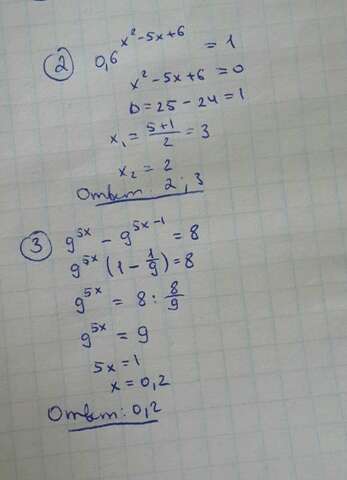 ② 0,6^(x²-5x+6) = 1
x²-5x+6=0
D=25-24=1
x₁=(5+1)/2=3
x₂=2
Ответ: 2; 3
③ 9^(5x) - 9^(5x-1) = 8
9^(5x) (1-1/9)=8
9^(5x) = 8 : 8/9
9^(5x) = 9
5x=1
x=0,2
Ответ: 0,2